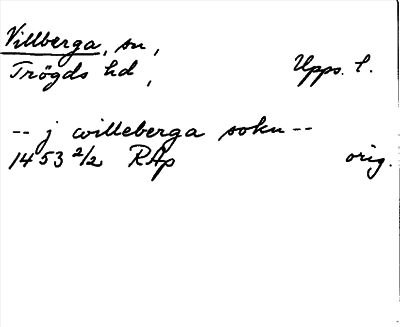 Villberga, sn,
Trögds hd, Upps. l.
-- j willeberga sokn --
1453 2/2 RAp orig.